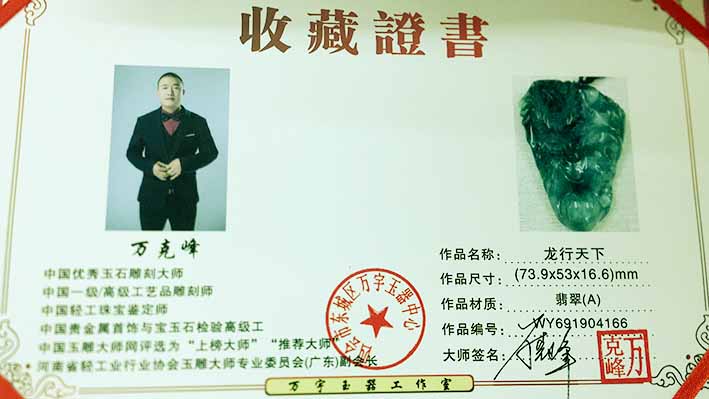 收藏證書
万克峰
中国优秀玉石雕刻大师
中国一级/高级工艺品雕刻师
中国轻工珠宝鉴定师
中国贵金属首饰与宝玉石检验高级工
中国玉雕大师网评选为“上榜大师”“推荐大师”
河南省轻工业行业协会玉雕大师专业委员会(广东)副会长
作品名称: 龙行天下
作品尺寸: (73.9x53x16.6)mm
作品材质: 翡翠(A)
作品编号: WY691904166
大师签名:
万克峰
会市东城区万字玉器中心
万字玉器工作室